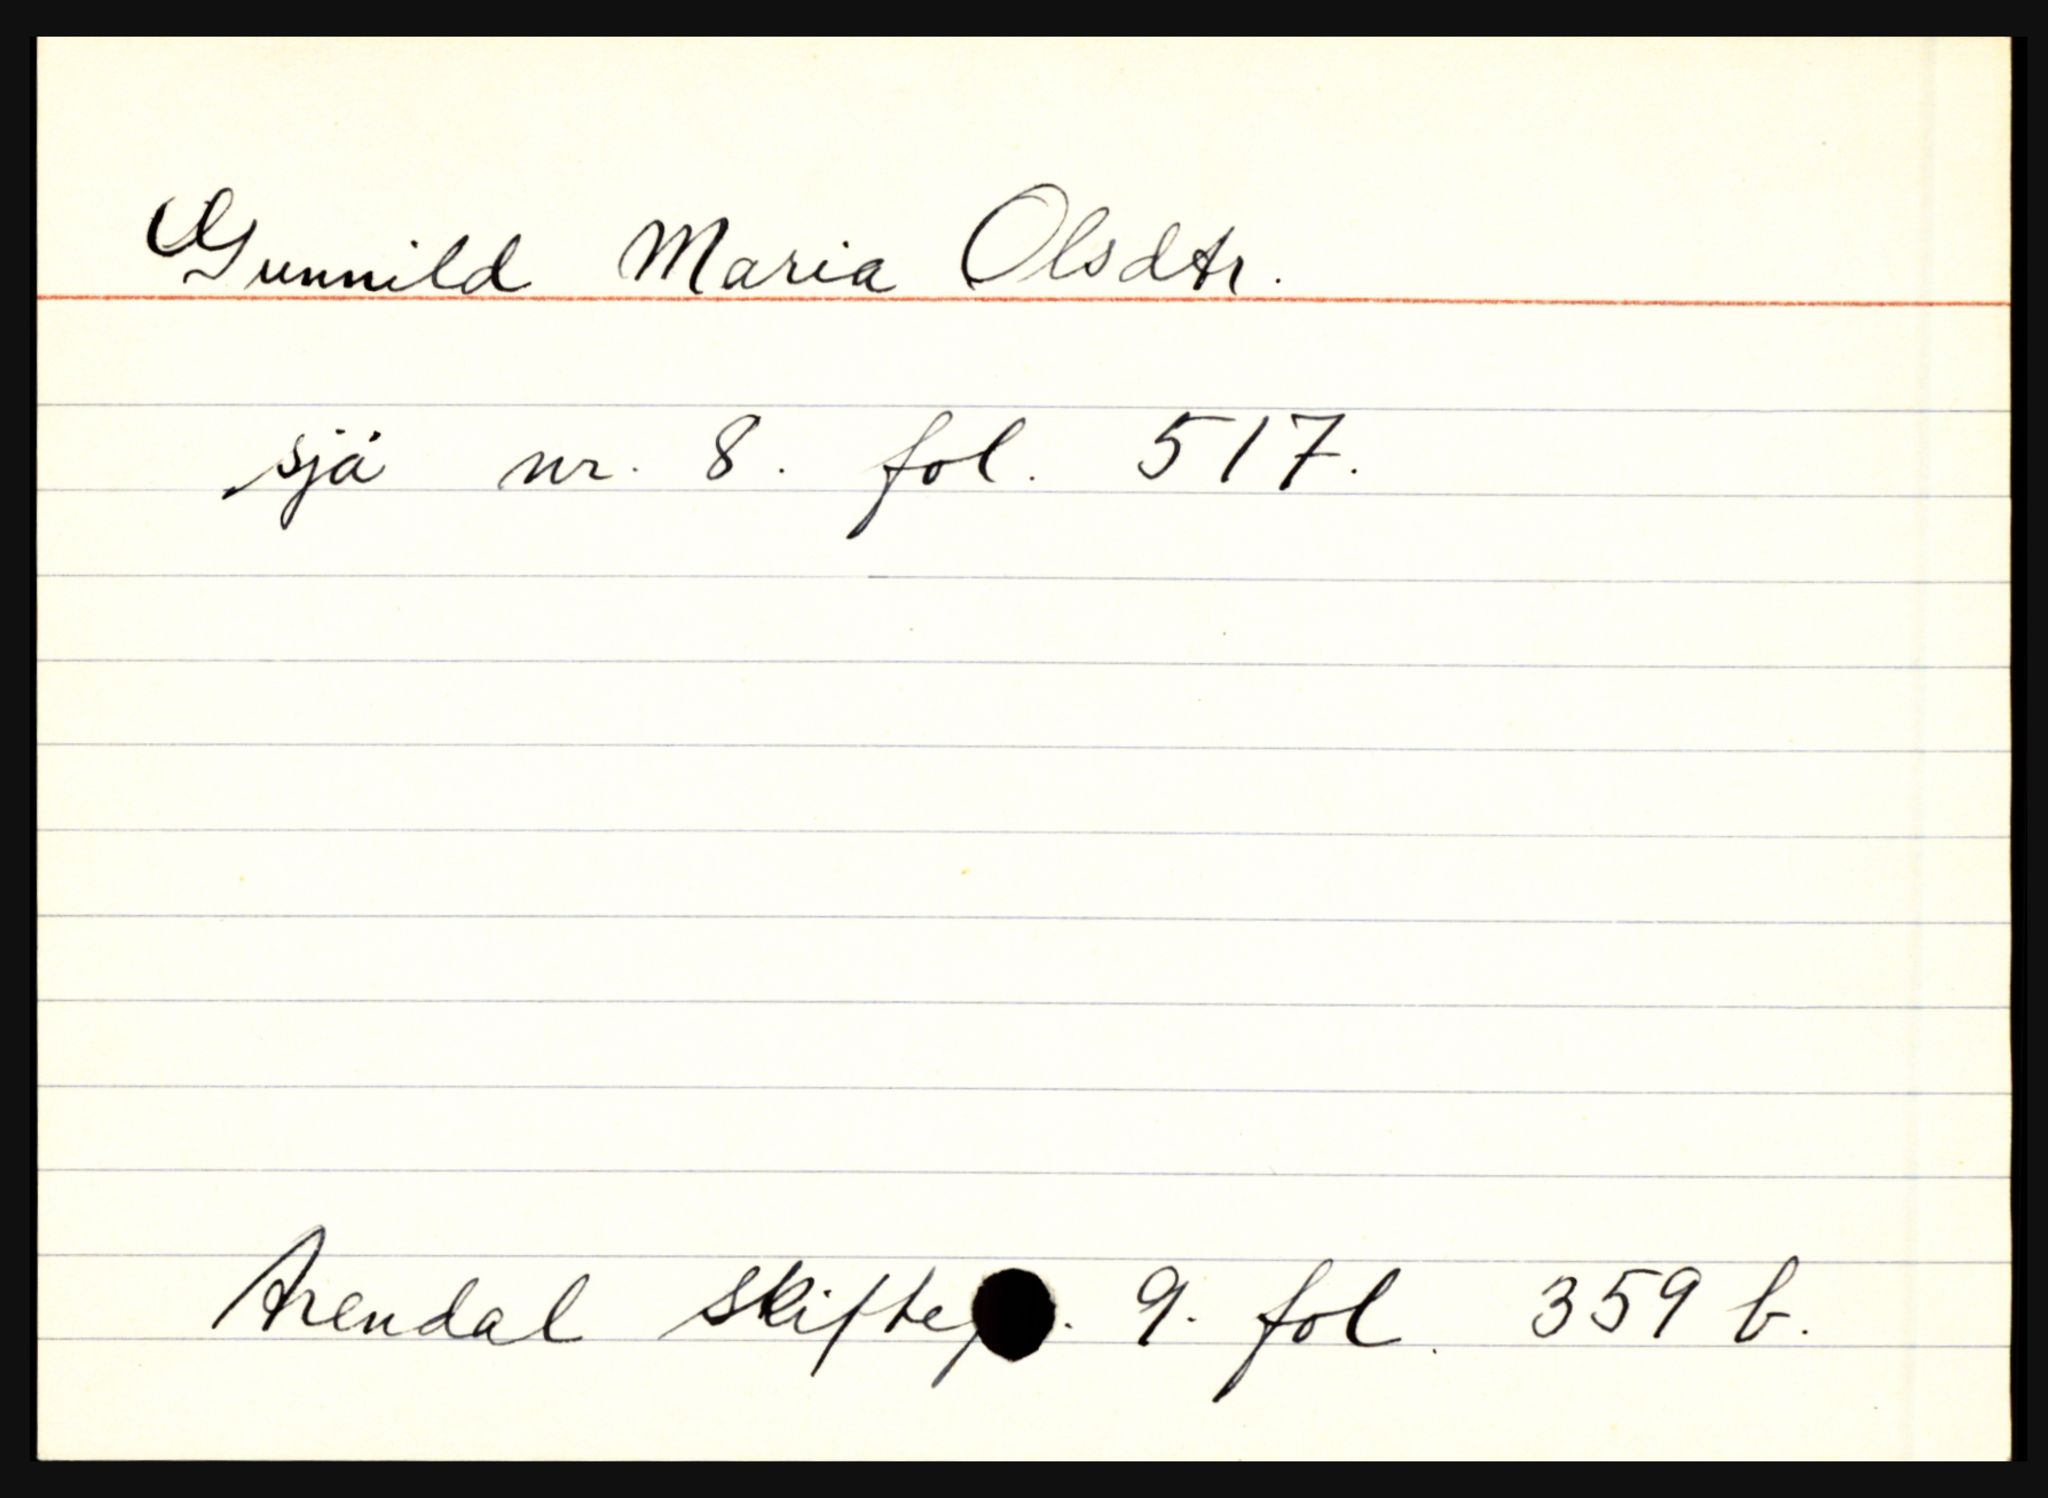 Gunnild Maria Olsdtr.
sjå nr. 8. fol. 517.
Arendal 9. fol. 359 b.